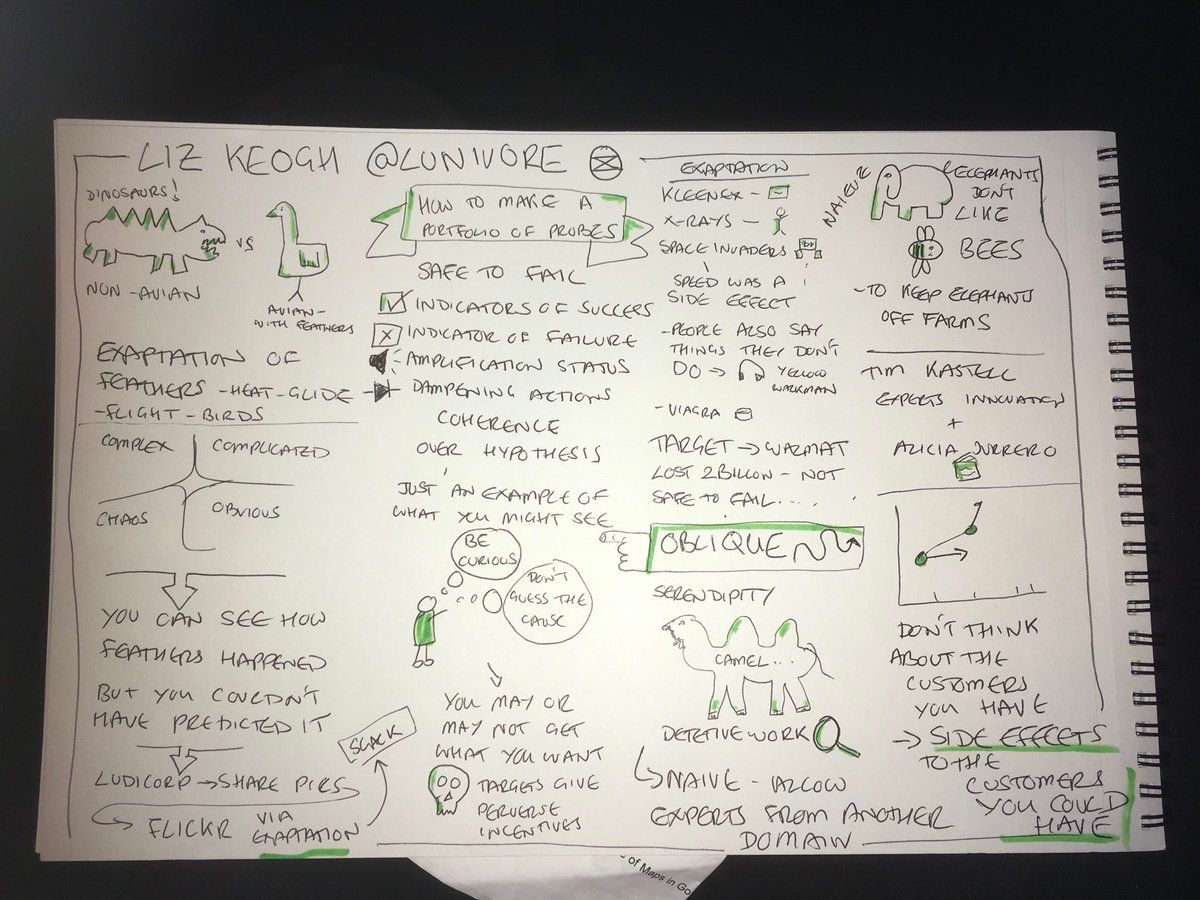 LIZ KEOGH @LUNIVORE
DINOSAURS!
VS
NON-AVIAN
AVIAN-
WITH FEATHERS
EXAPTATION OF
FEATHERS -HEAT-GLIDE
-FLIGHT-BIRDS
COMPLEX
COMPLICATED
CHAOS
OBVIOUS
YOU CAN SEE HOW
FEATHERS HAPPENED
BUT YOU COULDN'T
HAVE PREDICTED IT
LUDICORP → SHARE PICS
FLICKR VIA
EXAPTATION
SLACK
HOW TO MAKE A
PORTFOLIO OF PROBES
SAFE TO FAIL
INDICATORS OF SUCCESS
INDICATOR OF FAILURE
AMPLIFICATION STATUS
DAMPENING ACTIONS
COHERENCE
OVER HYPOTHESIS
JUST AN EXAMPLE OF
WHAT YOU MIGHT SEE
BE
CURIOUS
DON'T
GUESS THE
CAUSE
YOU MAY OR
MAY NOT GET
WHAT YOU WANT
TARGETS GIVE
PERVERSE
INCENTIVES
EXAPTATION
KLEENEX -
X-RAYS -
SPACE INVADERS
SPEED WAS A
SIDE EFFECT
-PEOPLE ALSO SAY
THINGS THEY DON'T
DO → YELLOW
WALKMAN
-VIAGRA
TARGET → WALMAT
LOST 2BILLON - NOT
SAFE TO FAIL....
OBLIQUE
SERENDIPITY
CAMEL...
DETETIVE WORK
NAIVE - ALLOW
EXPERTS FROM ANOTHER
DOMAIN
NATURE
ELEPHANTS
DON'T
LIKE
BEES
-TO KEEP ELEPHANTS
OFF FARMS
TIM KASTELL
EXPERTS INNOVATION
+
ALICIA JURRERO
DON'T THINK
ABOUT THE
CUSTOMERS
YOU HAVE
→ SIDE EFFECTS
TO THE
CUSTOMERS
YOU COULD
HAVE
of Maps in Go